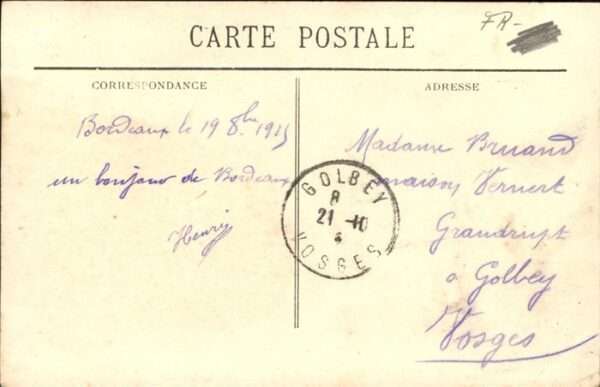 FR-
CARTE POSTALE
CORRESPONDANCE
ADRESSE
Bordeaux le 19 8bre 1915
un bonjour de Bordeaux
Henry
GOLBEY
8
21-10
VOSGES
Madame Bruand
maison Vernert
Grandrupt
à Golbey
Vosges